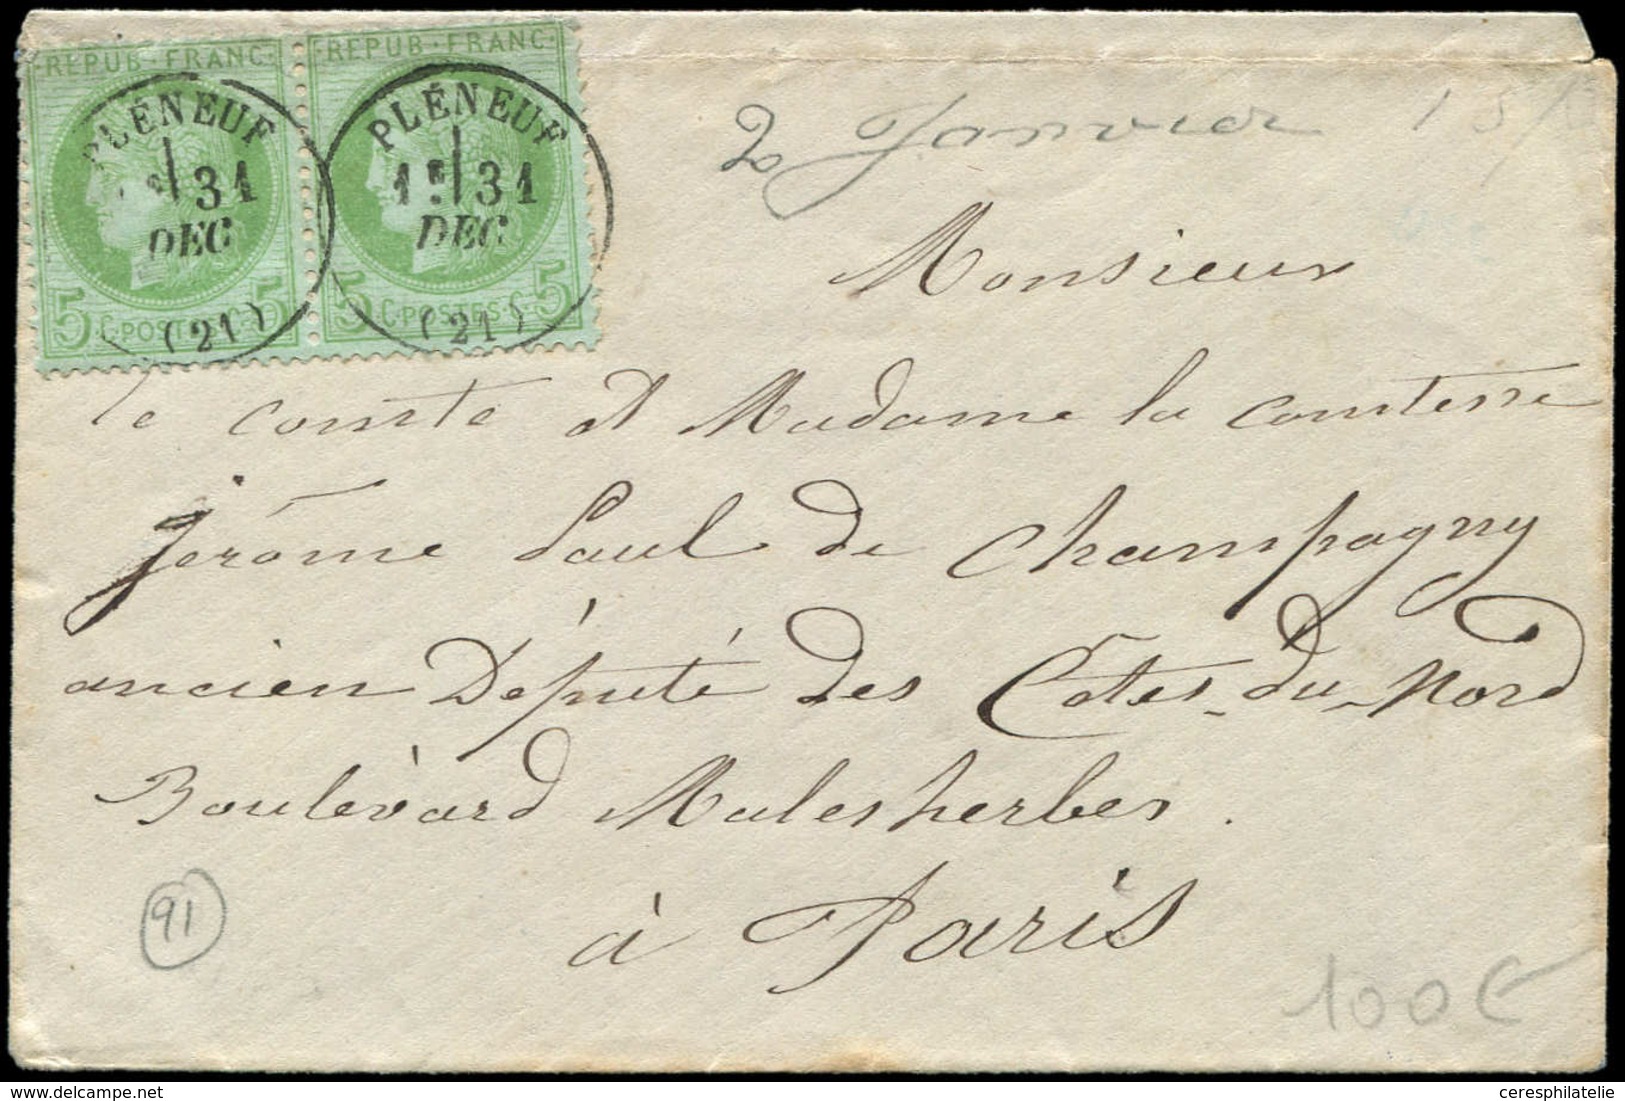 REPUB · FRANC · REPUB · FRANC
PLÉNEUF PLÉNEUF
31 1E 31
DEC DEC
5 C · POSTES · C 5 5 C · POSTES · C 5
(21) (21)
2 Janvier
Monsieur
le comte et Madame la comtesse
Jérôme Paul de Champagny
ancien Député des Côtes-du-Nord
Boulèvard Malesherbes.
à Paris
91
100€
delcampe.net
ceresphilatelie